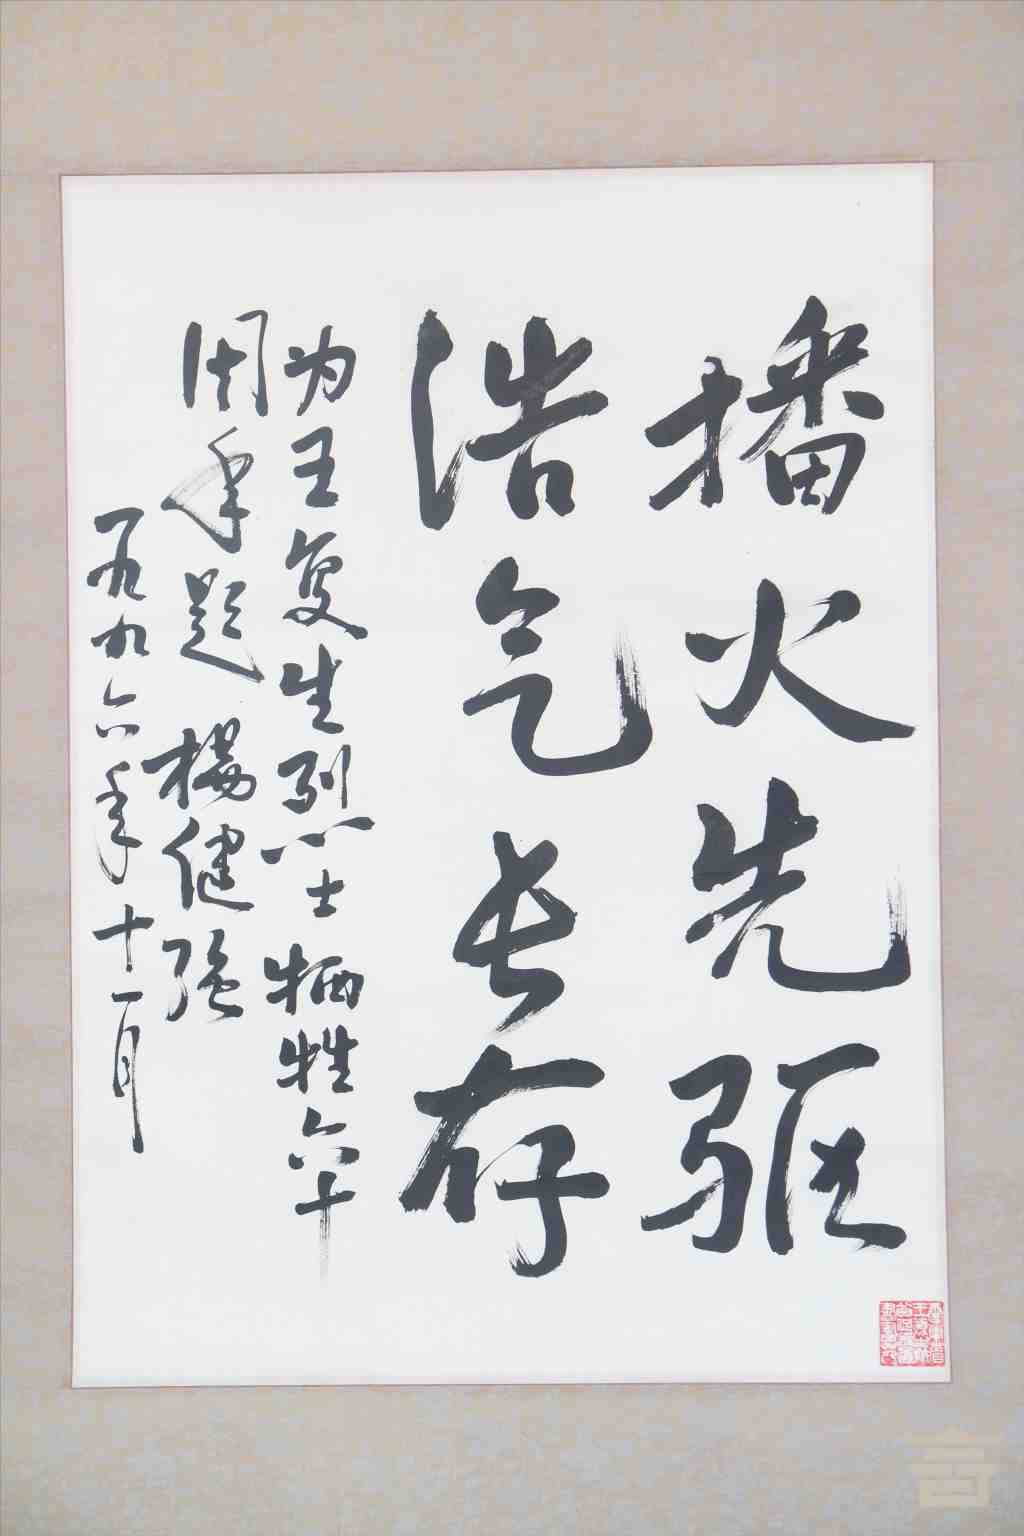 播火先驱
浩气长存
为王复生烈士牺牲六十
周年题 杨健强
一九九六年十一月